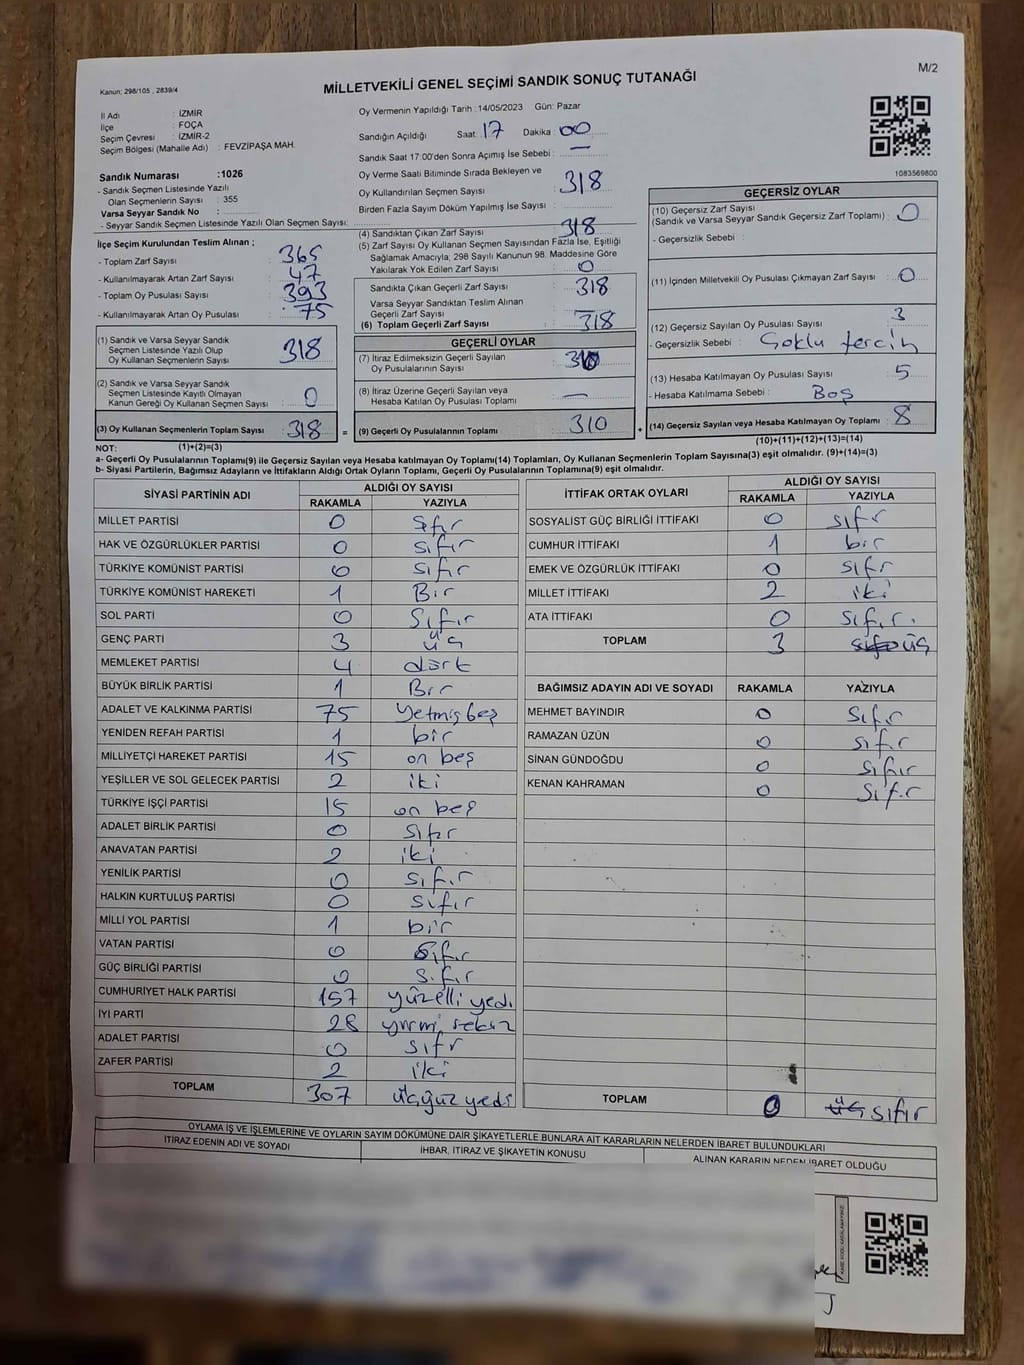 M/2
Kanun; 298/105 , 2839/4
MİLLETVEKİLİ GENEL SEÇİMİ SANDIK SONUÇ TUTANAĞI
İl Adı : İZMİR
İlçe : FOÇA
Seçim Çevresi : İZMİR-2
Seçim Bölgesi (Mahalle Adı) : FEVZİPAŞA MAH.
Sandık Numarası :1026
- Sandık Seçmen Listesinde Yazılı
Olan Seçmenlerin Sayısı : 355
Varsa Seyyar Sandık No :
- Seyyar Sandık Seçmen Listesinde Yazılı Olan Seçmen Sayısı:
İlçe Seçim Kurulundan Teslim Alınan ;
- Toplam Zarf Sayısı : 365
- Kullanılmayarak Artan Zarf Sayısı : 47
- Toplam Oy Pusulası Sayısı : 393
- Kullanılmayarak Artan Oy Pusulası : 75
(1) Sandık ve Varsa Seyyar Sandık
Seçmen Listesinde Yazılı Olup
Oy Kullanan Seçmenlerin Sayısı : 318
(2) Sandık ve Varsa Seyyar Sandık
Seçmen Listesinde Kayıtlı Olmayan
Kanun Gereği Oy Kullanan Seçmen Sayısı : 0
(3) Oy Kullanan Seçmenlerin Toplam Sayısı : 318 =
Oy Vermenin Yapıldığı Tarih : 14/05/2023 Gün: Pazar
Sandığın Açıldığı Saat : 17 Dakika : 00
Sandık Saat 17:00'den Sonra Açımış İse Sebebi : —
Oy Verme Saati Bitiminde Sırada Bekleyen ve
Oy Kullandırılan Seçmen Sayısı : 318
Birden Fazla Sayım Döküm Yapılmış İse Sayısı :
(4) Sandıktan Çıkan Zarf Sayısı : 318
(5) Zarf Sayısı Oy Kullanan Seçmen Sayısından Fazla İse, Eşitliği
Sağlamak Amacıyla; 298 Sayılı Kanunun 98. Maddesine Göre
Yakılarak Yok Edilen Zarf Sayısı : 0
Sandıkta Çıkan Geçerli Zarf Sayısı : 318
Varsa Seyyar Sandıktan Teslim Alınan
Geçerli Zarf Sayısı : —
(6) Toplam Geçerli Zarf Sayısı : 318
GEÇERLİ OYLAR
(7) İtiraz Edilmeksizin Geçerli Sayılan
Oy Pusulalarının Sayısı : 310
(8) İtiraz Üzerine Geçerli Sayılan veya
Hesaba Katılan Oy Pusulası Toplamı : —
(9) Geçerli Oy Pusulalarının Toplamı : 310 +
1083569800
GEÇERSİZ OYLAR
(10) Geçersiz Zarf Sayısı
(Sandık ve Varsa Seyyar Sandık Geçersiz Zarf Toplamı) : 0
- Geçersizlik Sebebi :
(11) İçinden Milletvekili Oy Pusulası Çıkmayan Zarf Sayısı : 0
(12) Geçersiz Sayılan Oy Pusulası Sayısı : 3
- Geçersizlik Sebebi : Çoklu tercih
(13) Hesaba Katılmayan Oy Pusulası Sayısı : 5
- Hesaba Katılmama Sebebi : Boş
(14) Geçersiz Sayılan veya Hesaba Katılmayan Oy Toplamı : 8
NOT: (1)+(2)=(3)
(10)+(11)+(12)+(13)=(14)
a- Geçerli Oy Pusulalarının Toplamı(9) ile Geçersiz Sayılan veya Hesaba katılmayan Oy Toplamı(14) Toplamları, Oy Kullanan Seçmenlerin Toplam Sayısına(3) eşit olmalıdır. (9)+(14)=(3)
b- Siyasi Partilerin, Bağımsız Adayların ve İttifakların Aldığı Ortak Oyların Toplamı, Geçerli Oy Pusulalarının Toplamına(9) eşit olmalıdır.
SİYASİ PARTİNİN ADI ALDIĞI OY SAYISI
RAKAMLA YAZIYLA
MİLLET PARTİSİ 0 sıfır
HAK VE ÖZGÜRLÜKLER PARTİSİ 0 sıfır
TÜRKİYE KOMÜNİST PARTİSİ 0 sıfır
TÜRKİYE KOMÜNİST HAREKETİ 1 Bir
SOL PARTİ 0 Sıfır
GENÇ PARTİ 3 üç
MEMLEKET PARTİSİ 4 dört
BÜYÜK BİRLİK PARTİSİ 1 Bir
ADALET VE KALKINMA PARTİSİ 75 yetmiş beş
YENİDEN REFAH PARTİSİ 1 bir
MİLLİYETÇİ HAREKET PARTİSİ 15 on beş
YEŞİLLER VE SOL GELECEK PARTİSİ 2 iki
TÜRKİYE İŞÇİ PARTİSİ 15 on beş
ADALET BİRLİK PARTİSİ 0 sıfır
ANAVATAN PARTİSİ 2 iki
YENİLİK PARTİSİ 0 sıfır
HALKIN KURTULUŞ PARTİSİ 0 sıfır
MİLLİ YOL PARTİSİ 1 bir
VATAN PARTİSİ 0 Sıfır
GÜÇ BİRLİĞİ PARTİSİ 0 sıfır
CUMHURİYET HALK PARTİSİ 157 yüzelli yedi
İYİ PARTİ 28 yirmi sekiz
ADALET PARTİSİ 0 sıfır
ZAFER PARTİSİ 2 iki
TOPLAM 307 üçyüz yedi
İTTİFAK ORTAK OYLARI ALDIĞI OY SAYISI
RAKAMLA YAZIYLA
SOSYALİST GÜÇ BİRLİĞİ İTTİFAKI 0 sıfır
CUMHUR İTTİFAKI 1 bir
EMEK VE ÖZGÜRLÜK İTTİFAKI 0 sıfır
MİLLET İTTİFAKI 2 iki
ATA İTTİFAKI 0 sıfır.
TOPLAM 3 üç
BAĞIMSIZ ADAYIN ADI VE SOYADI RAKAMLA YAZIYLA
MEHMET BAYINDIR 0 Sıfır
RAMAZAN ÜZÜN 0 sıfır
SİNAN GÜNDOĞDU 0 sıfır
KENAN KAHRAMAN 0 Sıfır
TOPLAM 0 üç sıfır
OYLAMA İŞ VE İŞLEMLERİNE VE OYLARIN SAYIM DÖKÜMÜNE DAİR ŞİKAYETLERLE BUNLARA AİT KARARLARIN NELERDEN İBARET BULUNDUKLARI
İTİRAZ EDENİN ADI VE SOYADI İHBAR, İTİRAZ VE ŞİKAYETİN KONUSU ALINAN KARARIN NEDEN İBARET OLDUĞU